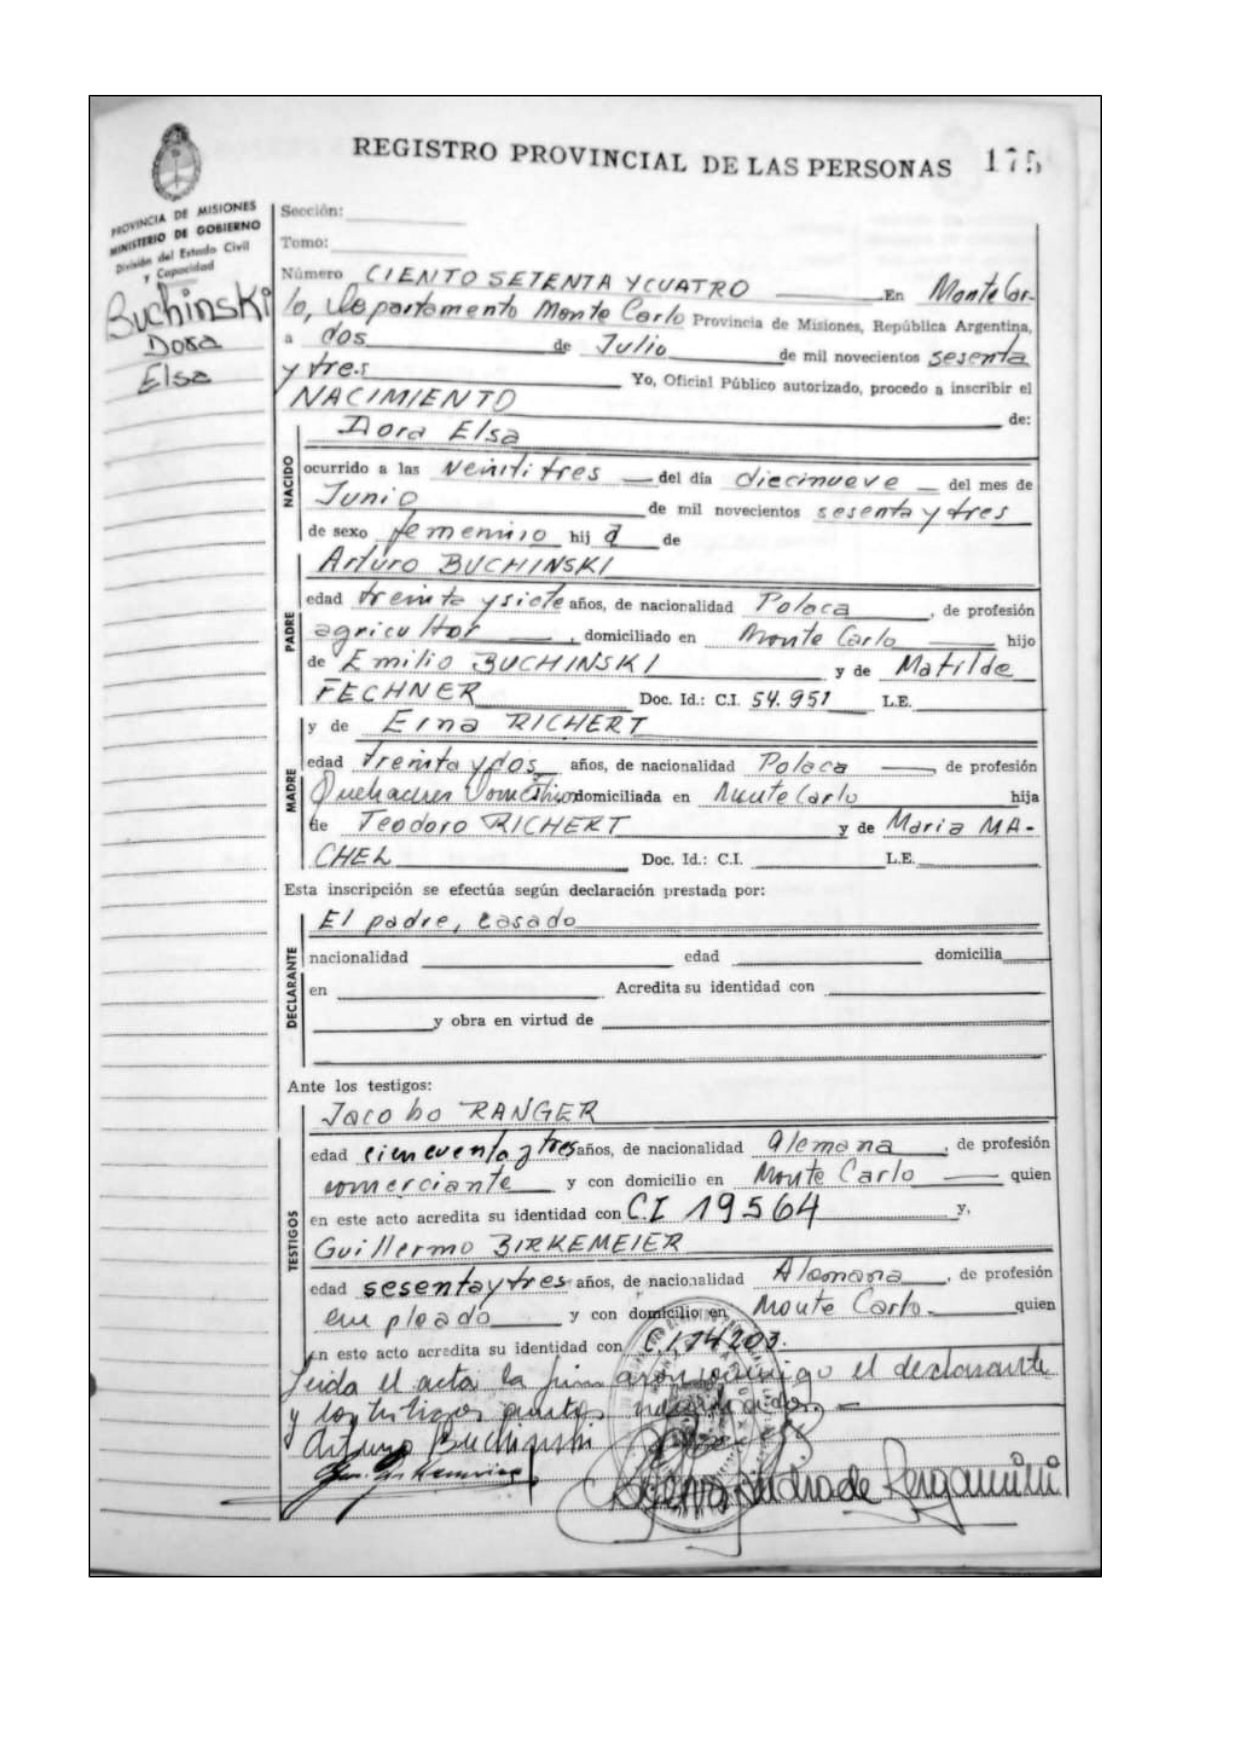 REGISTRO PROVINCIAL DE LAS PERSONAS 175
PROVINCIA DE MISIONES
MINISTERIO DE GOBIERNO
División del Estado Civil
y Capacidad
Buchinski
Dora
Elsa
Sección:
Tomo:
Número CIENTO SETENTA Y CUATRO En Monte Car-
lo, Departamento Monte Carlo Provincia de Misiones, República Argentina,
a dos de Julio de mil novecientos sesenta
y tres Yo, Oficial Público autorizado, procedo a inscribir el
NACIMIENTO de:
NACIDO
Dora Elsa
ocurrido a las veintitres del día diecinueve del mes de
Junio de mil novecientos sesenta y tres
de sexo femenino hij a de
PADRE
Arturo BUCHINSKI
edad treinta y siete años, de nacionalidad Polaca, de profesión
agricultor, domiciliado en Monte Carlo hijo
de Emilio BUCHINSKI y de Matilde
FECHNER Doc. Id.: C.I. 54.951 L.E.
MADRE
y de Erna RICHERT
edad treinta y dos años, de nacionalidad Polaca, de profesión
Quehaceres Domésticos domiciliada en Monte Carlo hija
de Teodoro RICHERT y de Maria MA-
CHEL Doc. Id.: C.I. L.E.
Esta inscripción se efectúa según declaración prestada por:
DECLARANTE
El padre, casado
nacionalidad edad domicilia
en Acredita su identidad con
y obra en virtud de
Ante los testigos:
TESTIGOS
Jacobo RANGER
edad cincuenta y tres años, de nacionalidad alemana, de profesión
comerciante y con domicilio en Monte Carlo quien
en este acto acredita su identidad con C.I 19564 y,
Guillermo BIRKEMEIER
edad sesenta y tres años, de nacionalidad Alemana, de profesión
empleado y con domicilio en Monte Carlo. quien
en este acto acredita su identidad con C.I.74203.
Leida el acta la firmaron conmigo el declarante
y los testigos
Arturo Buchinski
de Bergamini